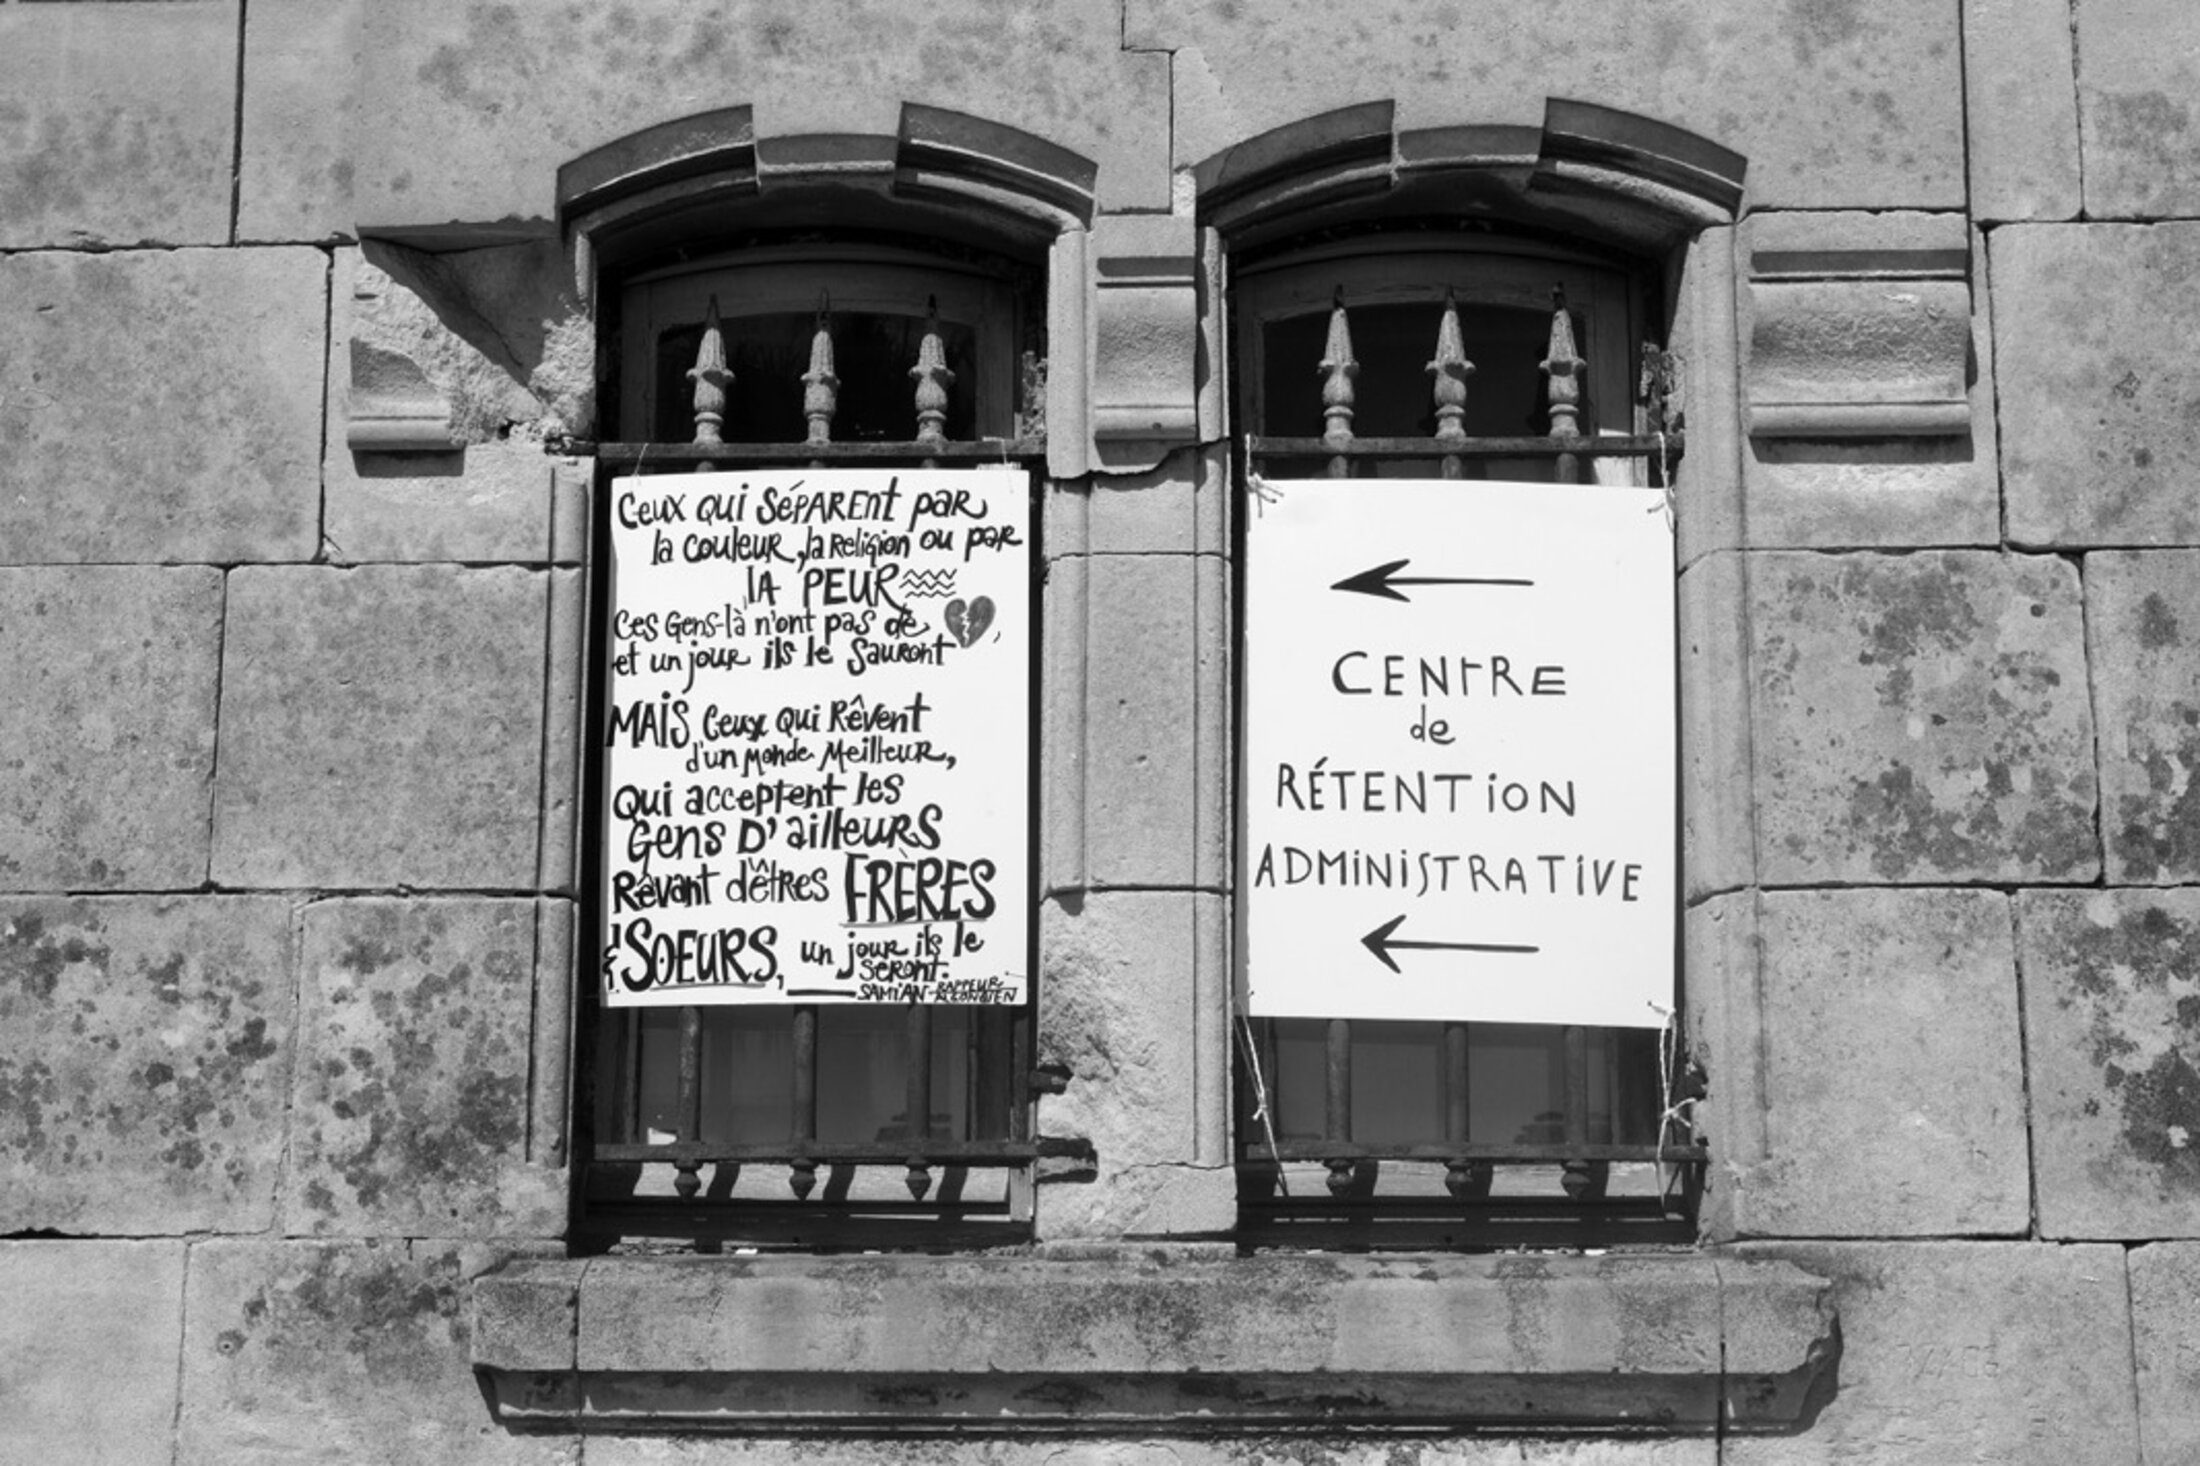 Ceux qui SÉPARENT PAR
la couleur, la Religion ou par
la PEUR
Ces Gens-là n'ont pas de
et un jour ils le Sauront
MAIS Ceux qui Rêvent
d'un Monde Meilleur,
Qui acceptent les
Gens D'ailleurs
Rêvant d'êtres FRÈRES
& SOEURS, un jour ils le
seront.
SAMIAN - RAPPEUR
ALGONQUIEN
CENTRE
de
RÉTENTION
ADMINISTRATIVE